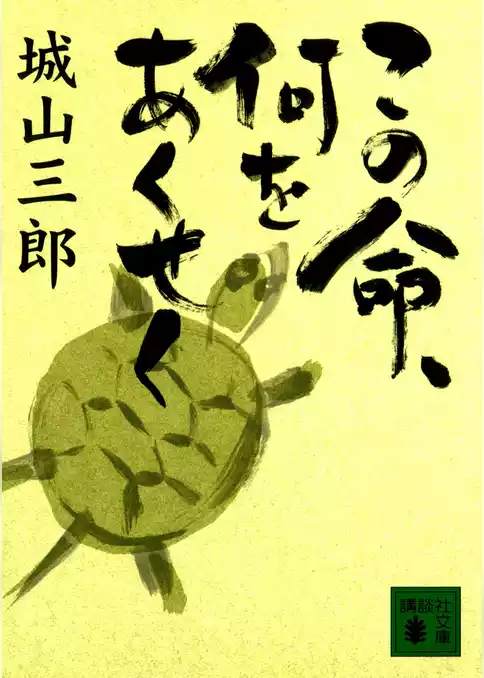 この命、
何を
あくせく
城山三郎
講談社
文庫